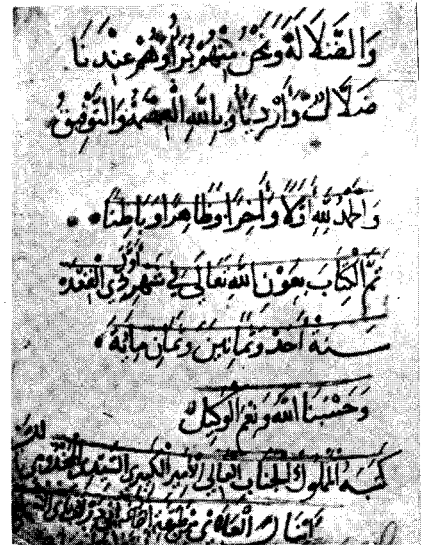 وَالضَّلَالَةَ وَنَحْنُ مِنْهُمْ بُرَآءُ وَهُمْ عِنْدَنَا
ضُلَّالٌ وَأَرْدِيَاءُ وَبِاللَّهِ الْعِصْمَةُ وَالتَّوْفِيقُ
وَالْحَمْدُ لِلَّهِ أَوَّلًا وَآخِرًا وَظَاهِرًا وَبَاطِنًا
تَمَّ الْكِتَابُ بِعَوْنِ اللَّهِ تَعَالَى فِي أَوَّلِ شَهْرِ ذِي الْقَعْدَة
سنة أحد وثمانين وثمان مائة
وَحَسْبُنَا اللَّهُ وَنِعْمَ الْوَكِيلُ
كتبه المملوك الجناب العالي الأمير الكبيري السيدي المخدومي
العلائي من طبقة